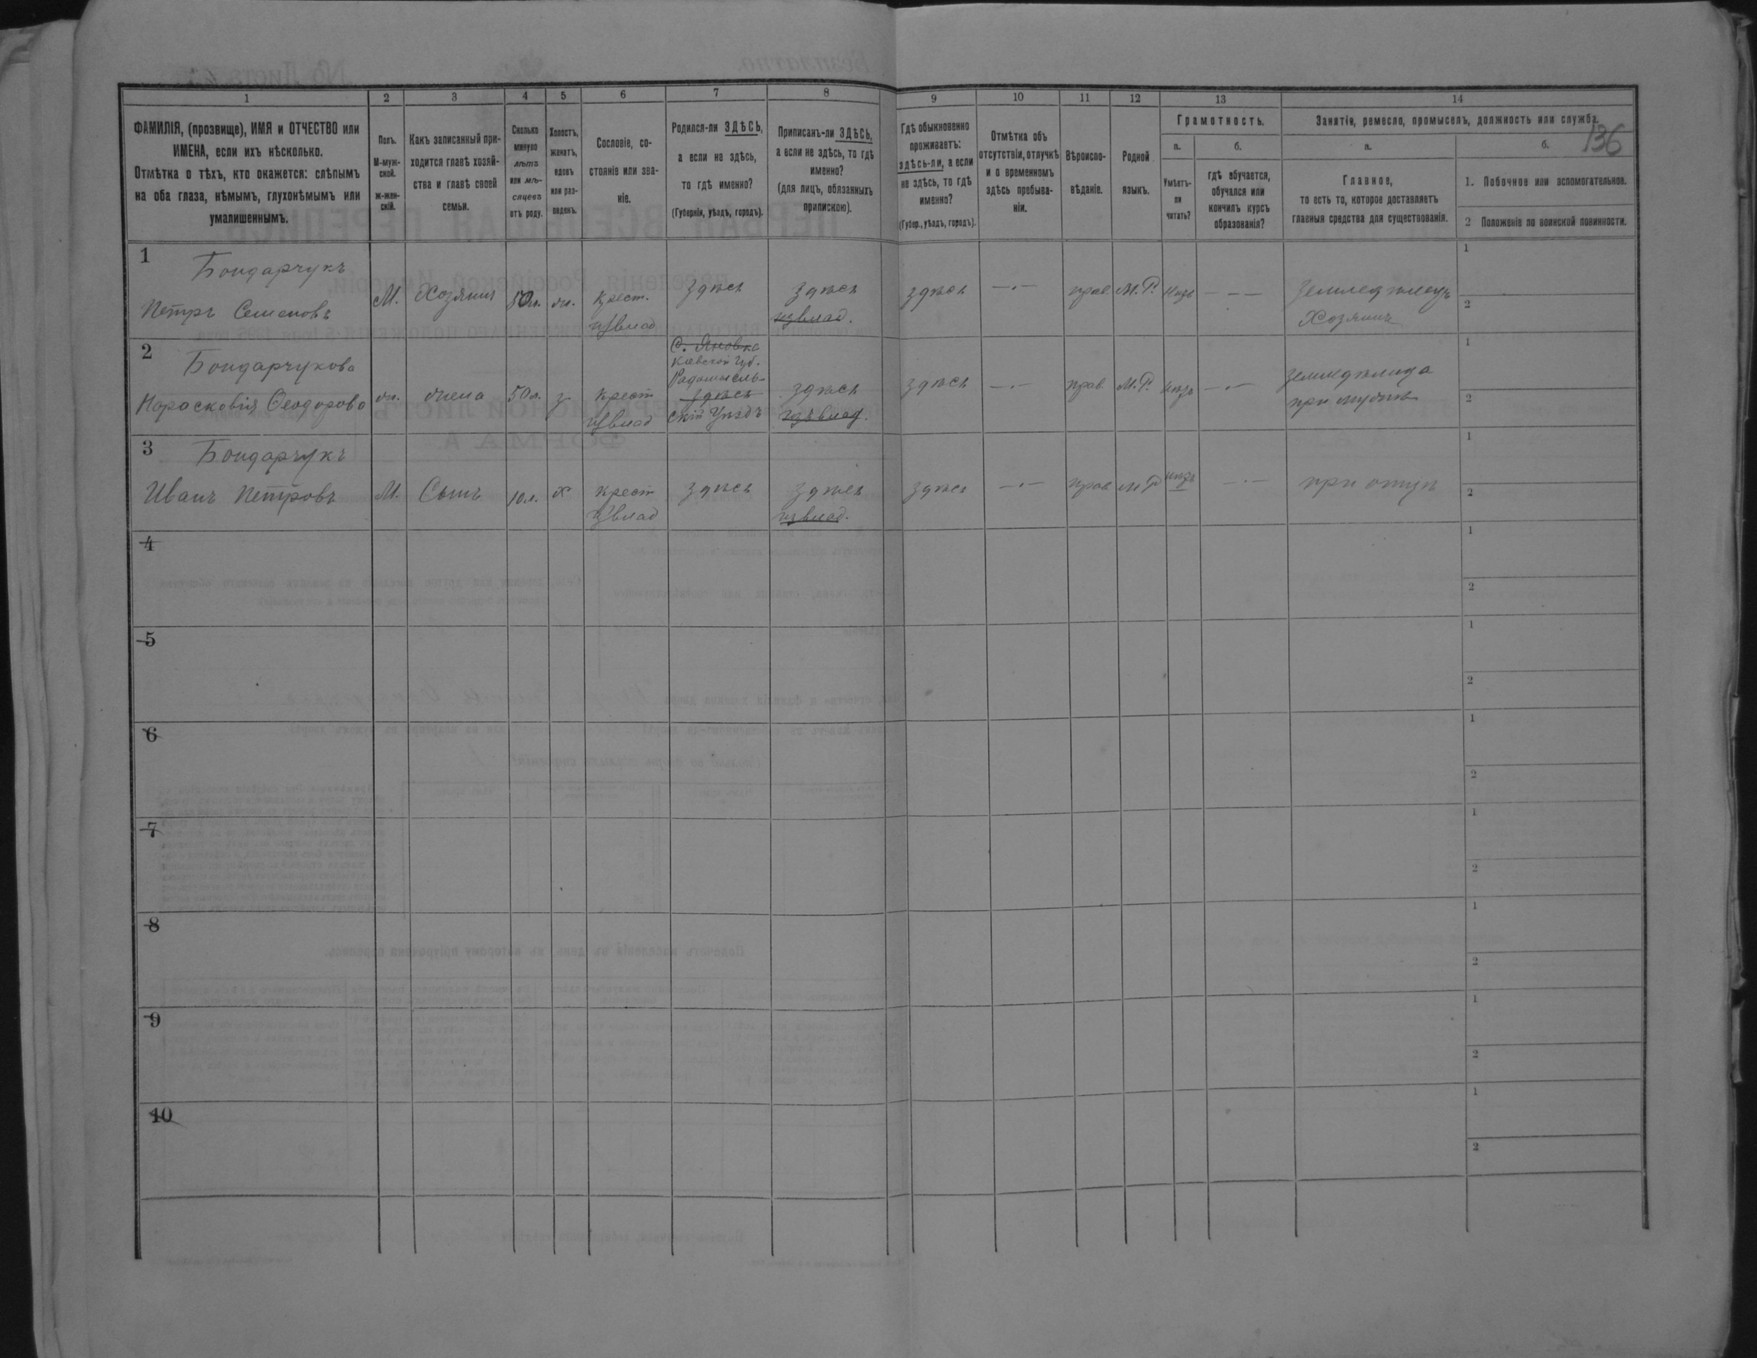 136
1 2 3 4 5 6 7 8 9 10 11 12 13 14
ФАМИЛІЯ, (прозвище), ИМЯ и ОТЧЕСТВО или
ИМЕНА, если ихъ нѣсколько.
Отмѣтка о тѣхъ, кто окажется: слѣпымъ
на оба глаза, нѣмымъ, глухонѣмымъ или
умалишеннымъ.
Полъ.
М-муж-
ской.
ж-жен-
скій.
Какъ записанный при-
ходится главѣ хозяй-
ства и главѣ своей
семьи.
Сколько
минуло
лѣтъ
или мѣ-
сяцевъ
отъ роду.
Холостъ,
женатъ,
вдовъ
или раз-
веденъ.
Сословіе, со-
стояніе или зва-
ніе.
Родился-ли ЗДѢСЬ,
а если не здѣсь,
то гдѣ именно?
(Губернія, уѣздъ, городъ).
Приписанъ-ли ЗДѢСЬ,
а если не здѣсь, то гдѣ
именно?
(для лицъ, обязанныхъ
припискою).
Гдѣ обыкновенно
проживаетъ:
здѣсь-ли, а если
не здѣсь, то гдѣ
именно?
(Губер., уѣздъ, городъ).
Отмѣтка объ
отсутствіи, отлучкѣ
и о временномъ
здѣсь пребыва-
ніи.
Вѣроиспо-
вѣданіе.
Родной
языкъ.
Грамотность.
а.
Умѣетъ-
ли
читать?
б.
гдѣ обучается,
обучался или
кончилъ курсъ
образованія?
Занятіе, ремесло, промыселъ, должность или служба.
а.
Главное,
то есть то, которое доставляетъ
главныя средства для существованія.
б.
1. Побочное или вспомогательное.
2 Положеніе по воинской повинности.
1 Бондарчукъ
Петръ Семеновъ
М. Хозяинъ 50л. жн. крест. здѣсь здѣсь здѣсь —·— прав М.Р. — —
изъ влад. изъ влад.
Земледѣлецъ
Хозяинъ
1
2
2 Бондарчукова
Парасковія Ѳеодорова
ж. жена 50л. з крест
изъ влад
С. Яновка
Кіевской Губ.
Радомысль-
здѣсь
скій Уѣздъ
здѣсь
изъ влад.
здѣсь —·— прав М.Р. —·—
при мужѣ
1
2
3 Бондарчукъ
Иванъ Петровъ
М. Сынъ 10л. х крест здѣсь здѣсь здѣсь —·— прав М Р —·— при отцѣ
изъ влад изъ влад.
1
2
4
1
2
5
1
2
6
1
2
7
1
2
8
1
2
9
1
2
10
1
2